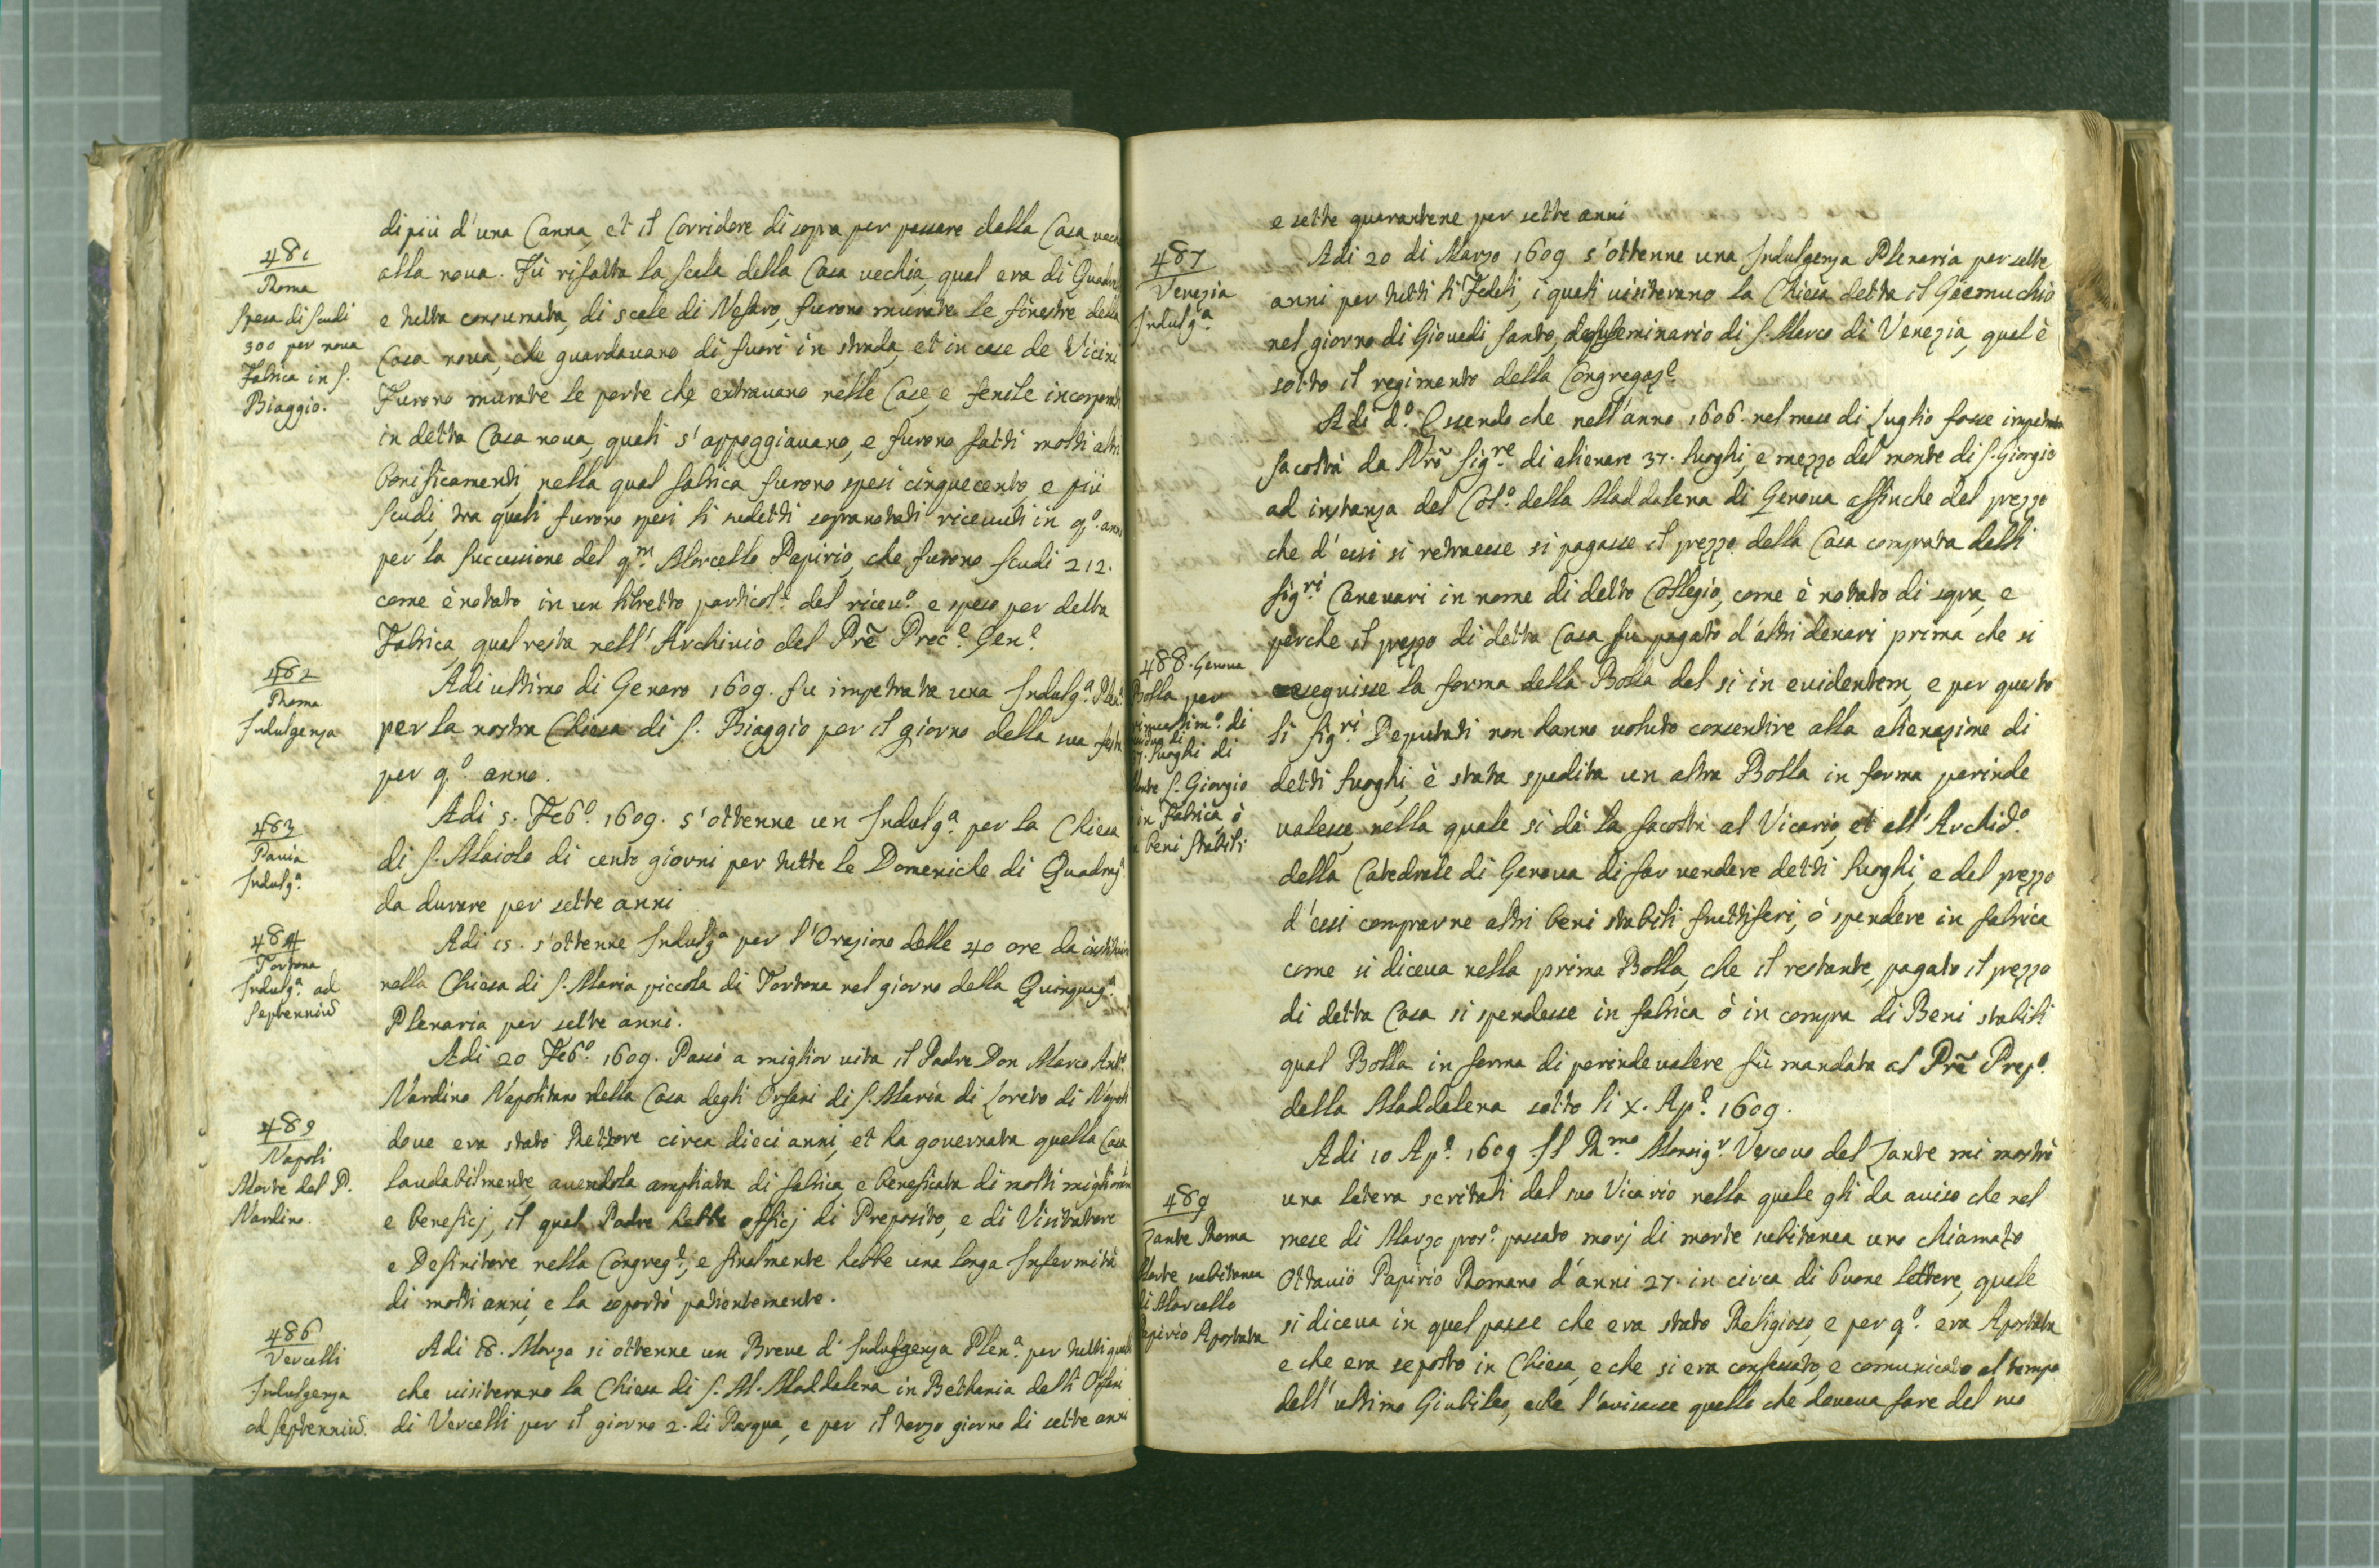 di più d'una Canna, et il Corridore di sopra per passare dalla Casa
alla nova. Fù rifatta la scala della Casa vechia, qual era di
e tutta consumata, di scale di furono murate le finestre della
Casa nova, che guardavano di fuori in strada, et in case de Vicini
Furono murate le porte che entravano nelle Case, e fenile
in detta Casa nova, quali s'appoggiavano, e furono fatti molti altri
bonificamenti, nella qual fabrica furono spesi cinquecento, e più
scudi, tra quali furono spesi li sudetti sopranotati ricevuti in q.º anno
per la successione del q.m Marcello Papirio, che furono scudi 212.
come è notato in un libretto particol.e del ricev.º e speso per detta
Fabrica, qual resta nell'Archivio del Prẽ Proc.e Gen.e
Adi ultimo di Genaro 1609. fu impetrata una Indulg.a Plen.a
per la nostra Chiesa di S. Biaggio per il giorno della sua festa
per q.º anno.
Adi 5. Feb.º 1609. s'ottenne un Indulg.a per la Chiesa
di S. Maiolo di cento giorni per tutte le Domeniche di Quadrag.
da durare per sette anni
Adi 15. s'ottenne Indulg.a per l'Orazione delle 40 ore da
nella Chiesa di S. Maria piccola di Tortona nel giorno della Quinquag.a
Plenaria per sette anni.
Adi 20 Feb.º 1609. Passò a miglior vita il Padre Don Marco Ant.º
Nardino Napolitano nella Casa degli Orfani di S. Maria di Loreto di Napoli
dove era stato Rettore circa dieci anni, et ha governata quella Casa
laudabilmente, avendola ampliata di fabrica, e beneficata di molti
e beneficj, il qual Padre hebbe officj di Preposito, e di Visitatore
e Definitore nella Congreg.e, e finalmente hebbe una longa Infermità
di molti anni, e la soportò patientemente.
Adi 18. Marzo si ottenne un Breve d'Indulgenza Plen.a per tutti quelli
che visiterano la Chiesa di S. M. Maddalena in Bethania delli Orfani
di Vercelli per il giorno 2. di Pasqua, e per il terzo giorno di sette anni
481
Roma
Spesa di scudi
500 per nova
Fabrica in S.
Biaggio.
482
Roma
Indulgenza
483
Pavia
Indulg.a
484
Tortona
Indulg.a ad
septenniũ
489
Napoli
Morte del P.
Nardino.
486
Vercelli
Indulgenza
ad septenniũ.
e sette quarantene per sette anni
Adi 20 di Marzo 1609 s'ottenne una Indulgenza Plenaria per sette
anni per tutti li Fedeli, i quali visiterano la Chiesa detta il
nel giorno di Giovedi santo, del seminario di S. Marco di Venezia, qual è
sotto il regimento della Congregaz.e
Adi d.º Essendo che nell'anno 1606. nel mese di Luglio fosse impetrata
facoltà da Nrõ Sig.re di alienare 37. Luoghi, e mezzo del monte di S. Giorgio
ad instanza del Col.º della Maddalena di Genova affinche del prezzo
che d'essi si retraesse si pagasse il prezzo della Casa comprata dalli
Sig.ri Canevari in nome di detto Collegio, come è notato di sopra, e
perche il prezzo di detta Casa fu pagato d'altri denari prima che si
eseguisse la forma della Bolla del si in evidentem, e per questo
li Sig.ri Deputati non hanno voluto consentire alla alienazione di
detti Luoghi, è stata spedita un altra Bolla in forma perinde
valesse, nella quale si dà la facoltà al Vicario, et all'Archid.º
della Catedrale di Genova di far vendere detti Luoghi, e del prezzo
d'essi comprarne altri beni stabili fruttiferi, ò spendere in fabrica
come si diceva nella prima Bolla, che il restante, pagato il prezzo
di detta Casa si spendesse in fabrica ò in compra di Beni stabili
qual Bolla in forma di perinde valere fù mandata al Prẽ Prep.º
della Maddalena sotto li X. Ap.e 1609.
Adi 10 Ap.e 1609 Il R.mo Monsig.r Vescovo del Zante mi mostrò
una letera scritali dal suo Vicario nella quale gli da aviso che nel
mese di Marzo pros.º passato morj di morte subitanea uno chiamato
Ottavio Papirio Romano d'anni 27. in circa di buone lettere, quale
si diceva in quel paese che era stato Religioso, e per q.º era Apostata
e che era sepolto in Chiesa, e che si era confessato, e comunicato al tempo
dell'ultimo Giubileo, e che l'avisasse quello che doveva fare del suo
487
Venezia
Indulg.a
488. Genova
Bolla per
di
Luoghi di
S. Giorgio
in Fabrica ò
beni stabili
489
Zante Roma
Morte subitanea
di Marcello
Papirio Apostata